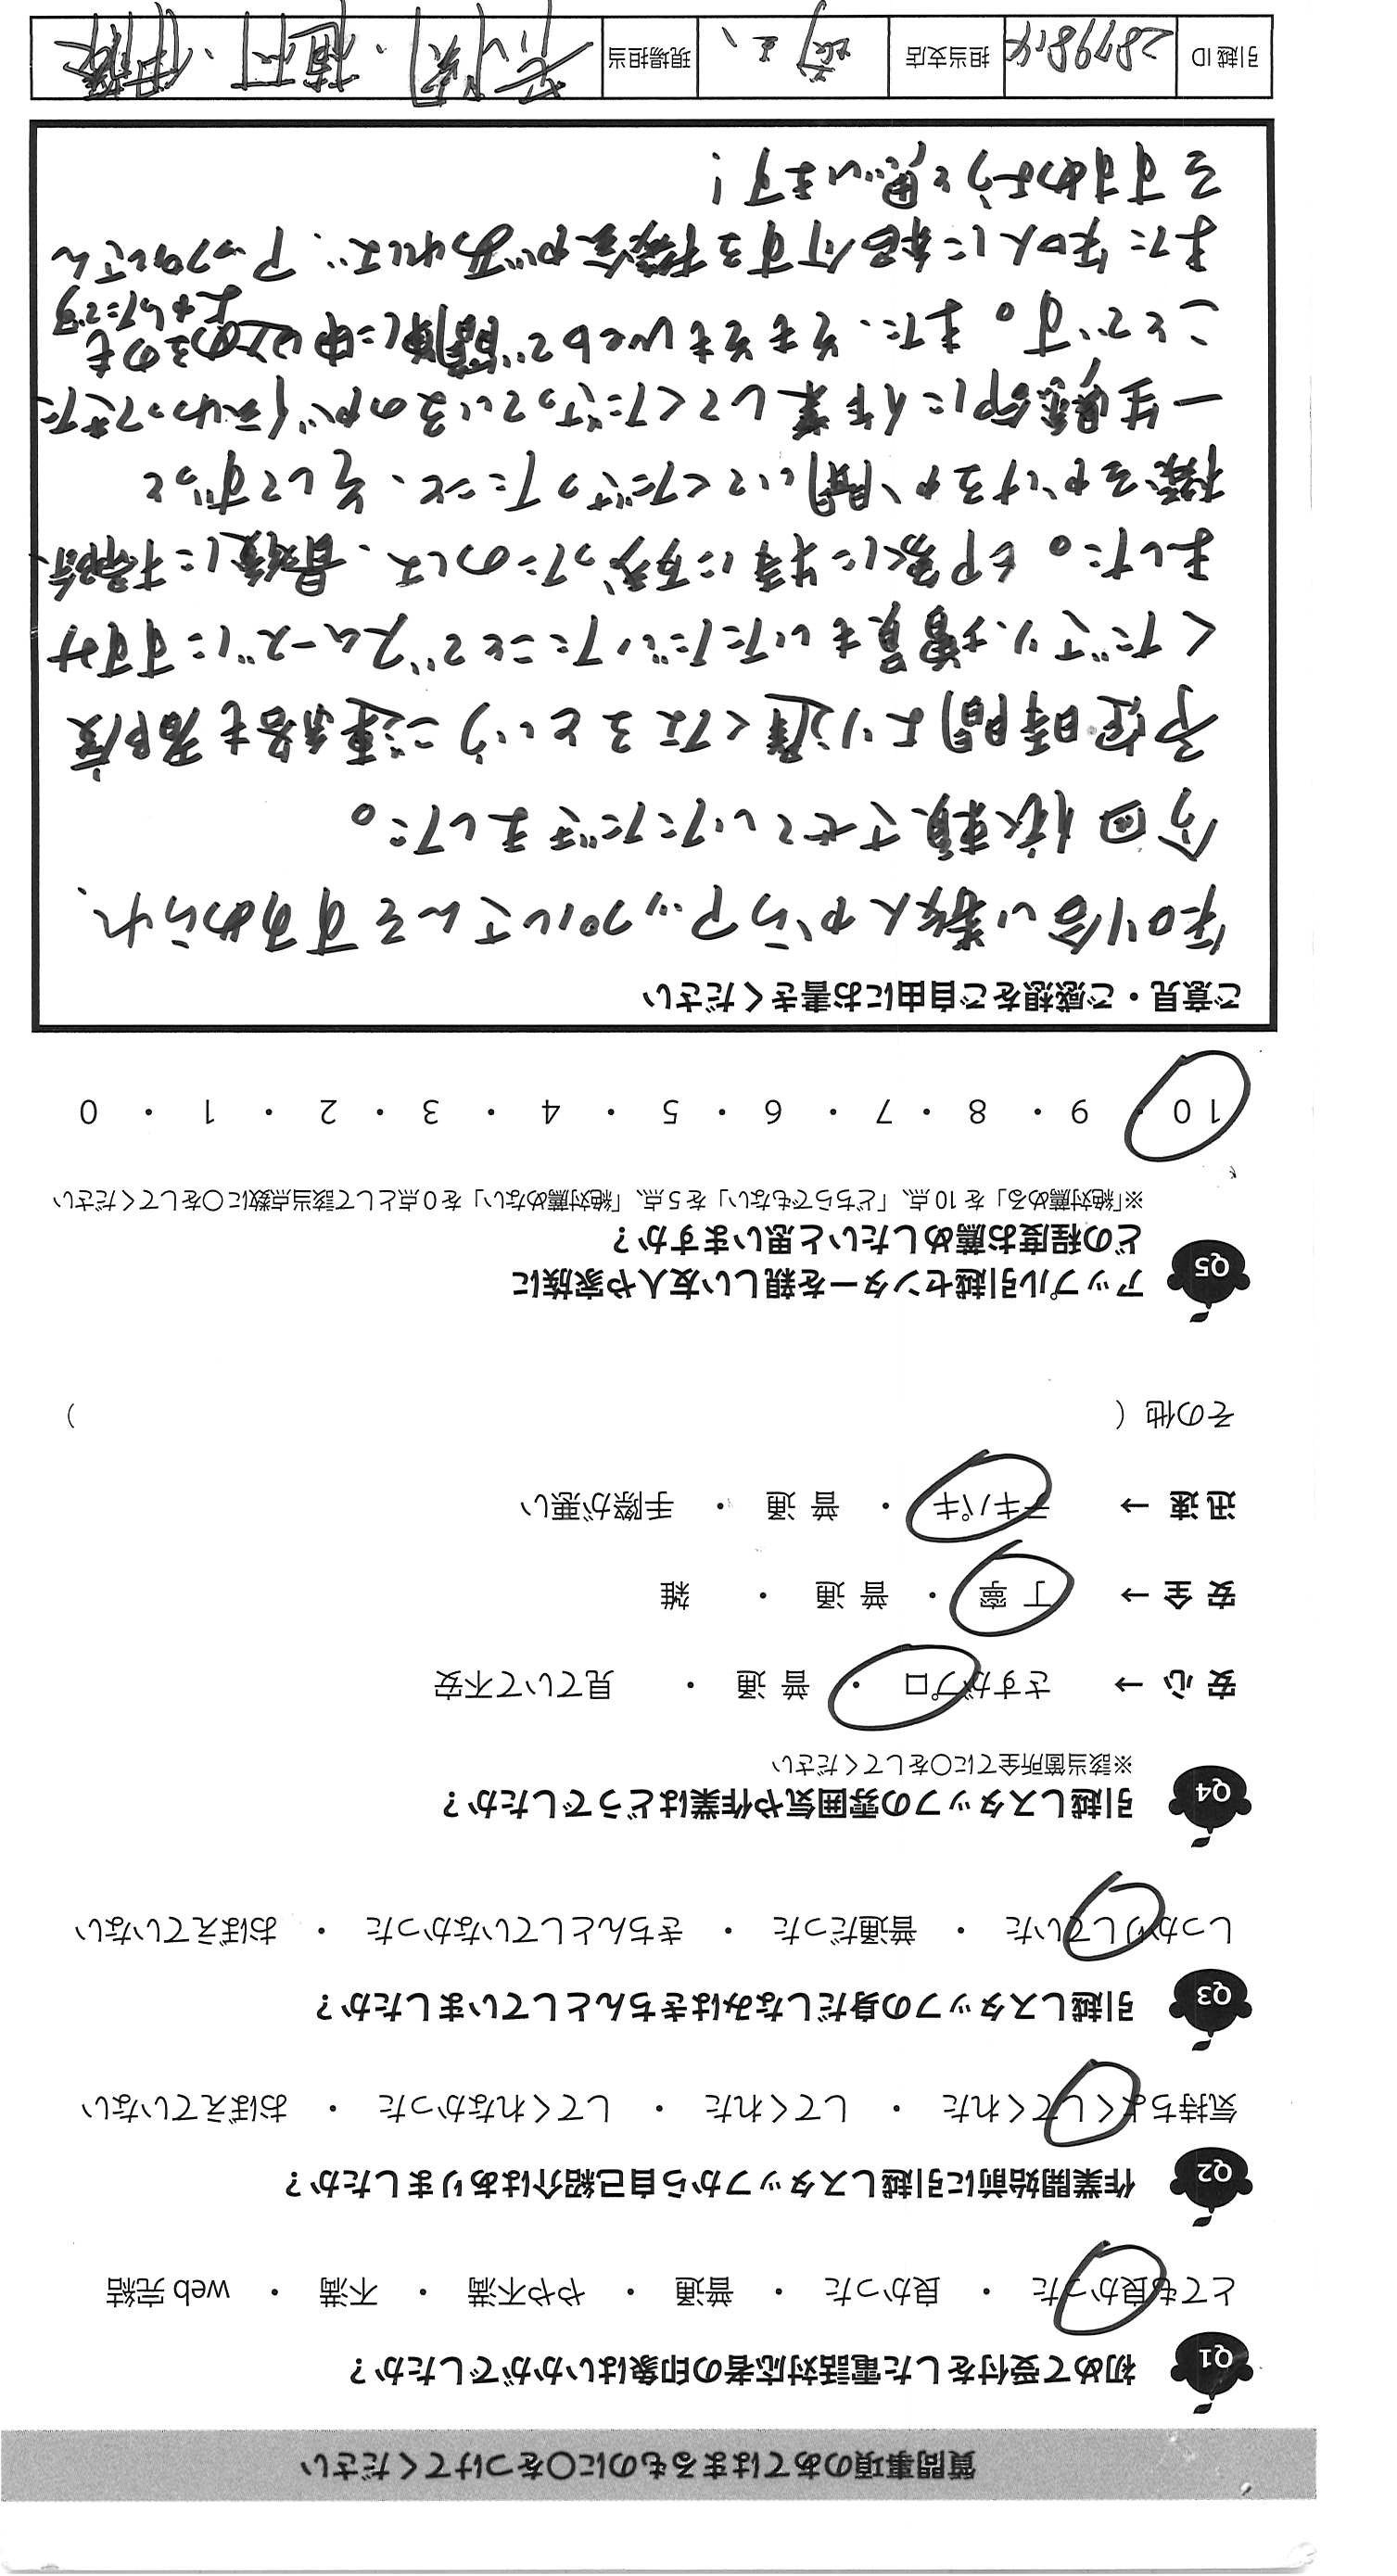 質問事項のあてはまるものに〇をつけてください
Q1 初めて受付をした電話対応者の印象はいかがでしたか？
とても良かった ・ 良かった ・ 普通 ・ やや不満 ・ 不満 ・ web 完結
Q2 作業開始前に引越しスタッフから自己紹介はありましたか？
気持ちよくしてくれた ・ してくれた ・ してくれなかった ・ おぼえていない
Q3 引越しスタッフの身だしなみはきちんとしていましたか？
しっかりしていた ・ 普通だった ・ きちんとしていなかった ・ おぼえていない
Q4 引越しスタッフの雰囲気や作業はどうでしたか？
※該当箇所全てに〇をしてください
安 心 → さすがプロ ・ 普 通 ・ 見ていて不安
安 全 → 丁 寧 ・ 普 通 ・ 雑
迅 速 → テキパキ ・ 普 通 ・ 手際が悪い
その他 （ ）
Q5 アップル引越センターを親しい友人や家族に
どの程度お薦めしたいと思いますか？
※「絶対薦める」を 10 点、「どちらでもない」を 5 点、「絶対薦めない」を 0 点として該当点数に〇をしてください
10 ・ 9 ・ 8 ・ 7 ・ 6 ・ 5 ・ 4 ・ 3 ・ 2 ・ 1 ・ 0
ご意見・ご感想をご自由にお書きください
知り合い数人からアップルさんをすすめられ、
今回依頼させていただきました。
予定時間より遅くなるというご連絡も都度
くださり、増員もいただいたことでスムーズにすすみ
ました。印象に特に残ったのは、最後に掃除
機をかけるか聞いてくださったこと、そしてずっと
一生懸命に作業してくださっているのが伝わってきた
ことです。また、そもそもWebで簡単に申込めるのも
よかったです
また知人に紹介する機会があれば、アップルさん
をすすめようと思います！
引越 ID 2879814 担当支店 埼玉 現場担当